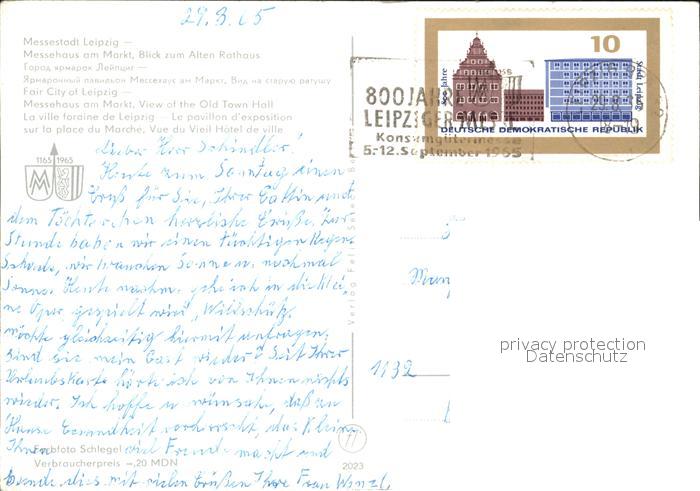 29.8.65
Messestadt Leipzig —
Messehaus am Markt, Blick zum Alten Rathaus
Город ярмарок Лейпциг —
Ярмарочный павильон Мессехаус ам Маркт, Вид на старую ратушу
Fair City of Leipzig —
Messehaus am Markt, View of the Old Town Hall
La ville foraine de Leipzig — Le pavillon d'exposition
sur la place du Marche, Vue du Vieil Hôtel de ville
1165 1965
10
800 Jahre
Stadt Leipzig
DEUTSCHE DEMOKRATISCHE REPUBLIK
800 JAHRE
LEIPZIGER MESSE
Konsumgütermesse
5.-12. September 1965
Lieber Herr Schindler!
Heute zum Sonntag einen
Gruß für Sie, Ihrer Gattin und
dem Töchterchen herzliche Grüße. Zur
Stunde haben wir einen tüchtigen Regen.
Schade, wir brauchen Sonne u. nochmal
Sonne. Heute nachm. gehe ich in die Klei-
ne Oper, gespielt wird „Wildschütz.
möchte gleichzeitig hiermit anfragen,
sind Sie mein Gast wieder? Seit Ihrer
Urlaubskarte hörte ich von Ihnen nichts
wieder. Ich hoffe u. wünsche, daß zu
Hause Gesundheit vorherrscht, das Kleine
Ihnen viel Freude macht und
sende dies mit vielen Grüßen Ihre Frau Wenzl.
Farbfoto Schlegel
Verbraucherpreis —,20 MDN
2023
Verlag
1132
privacy protection
Datenschutz